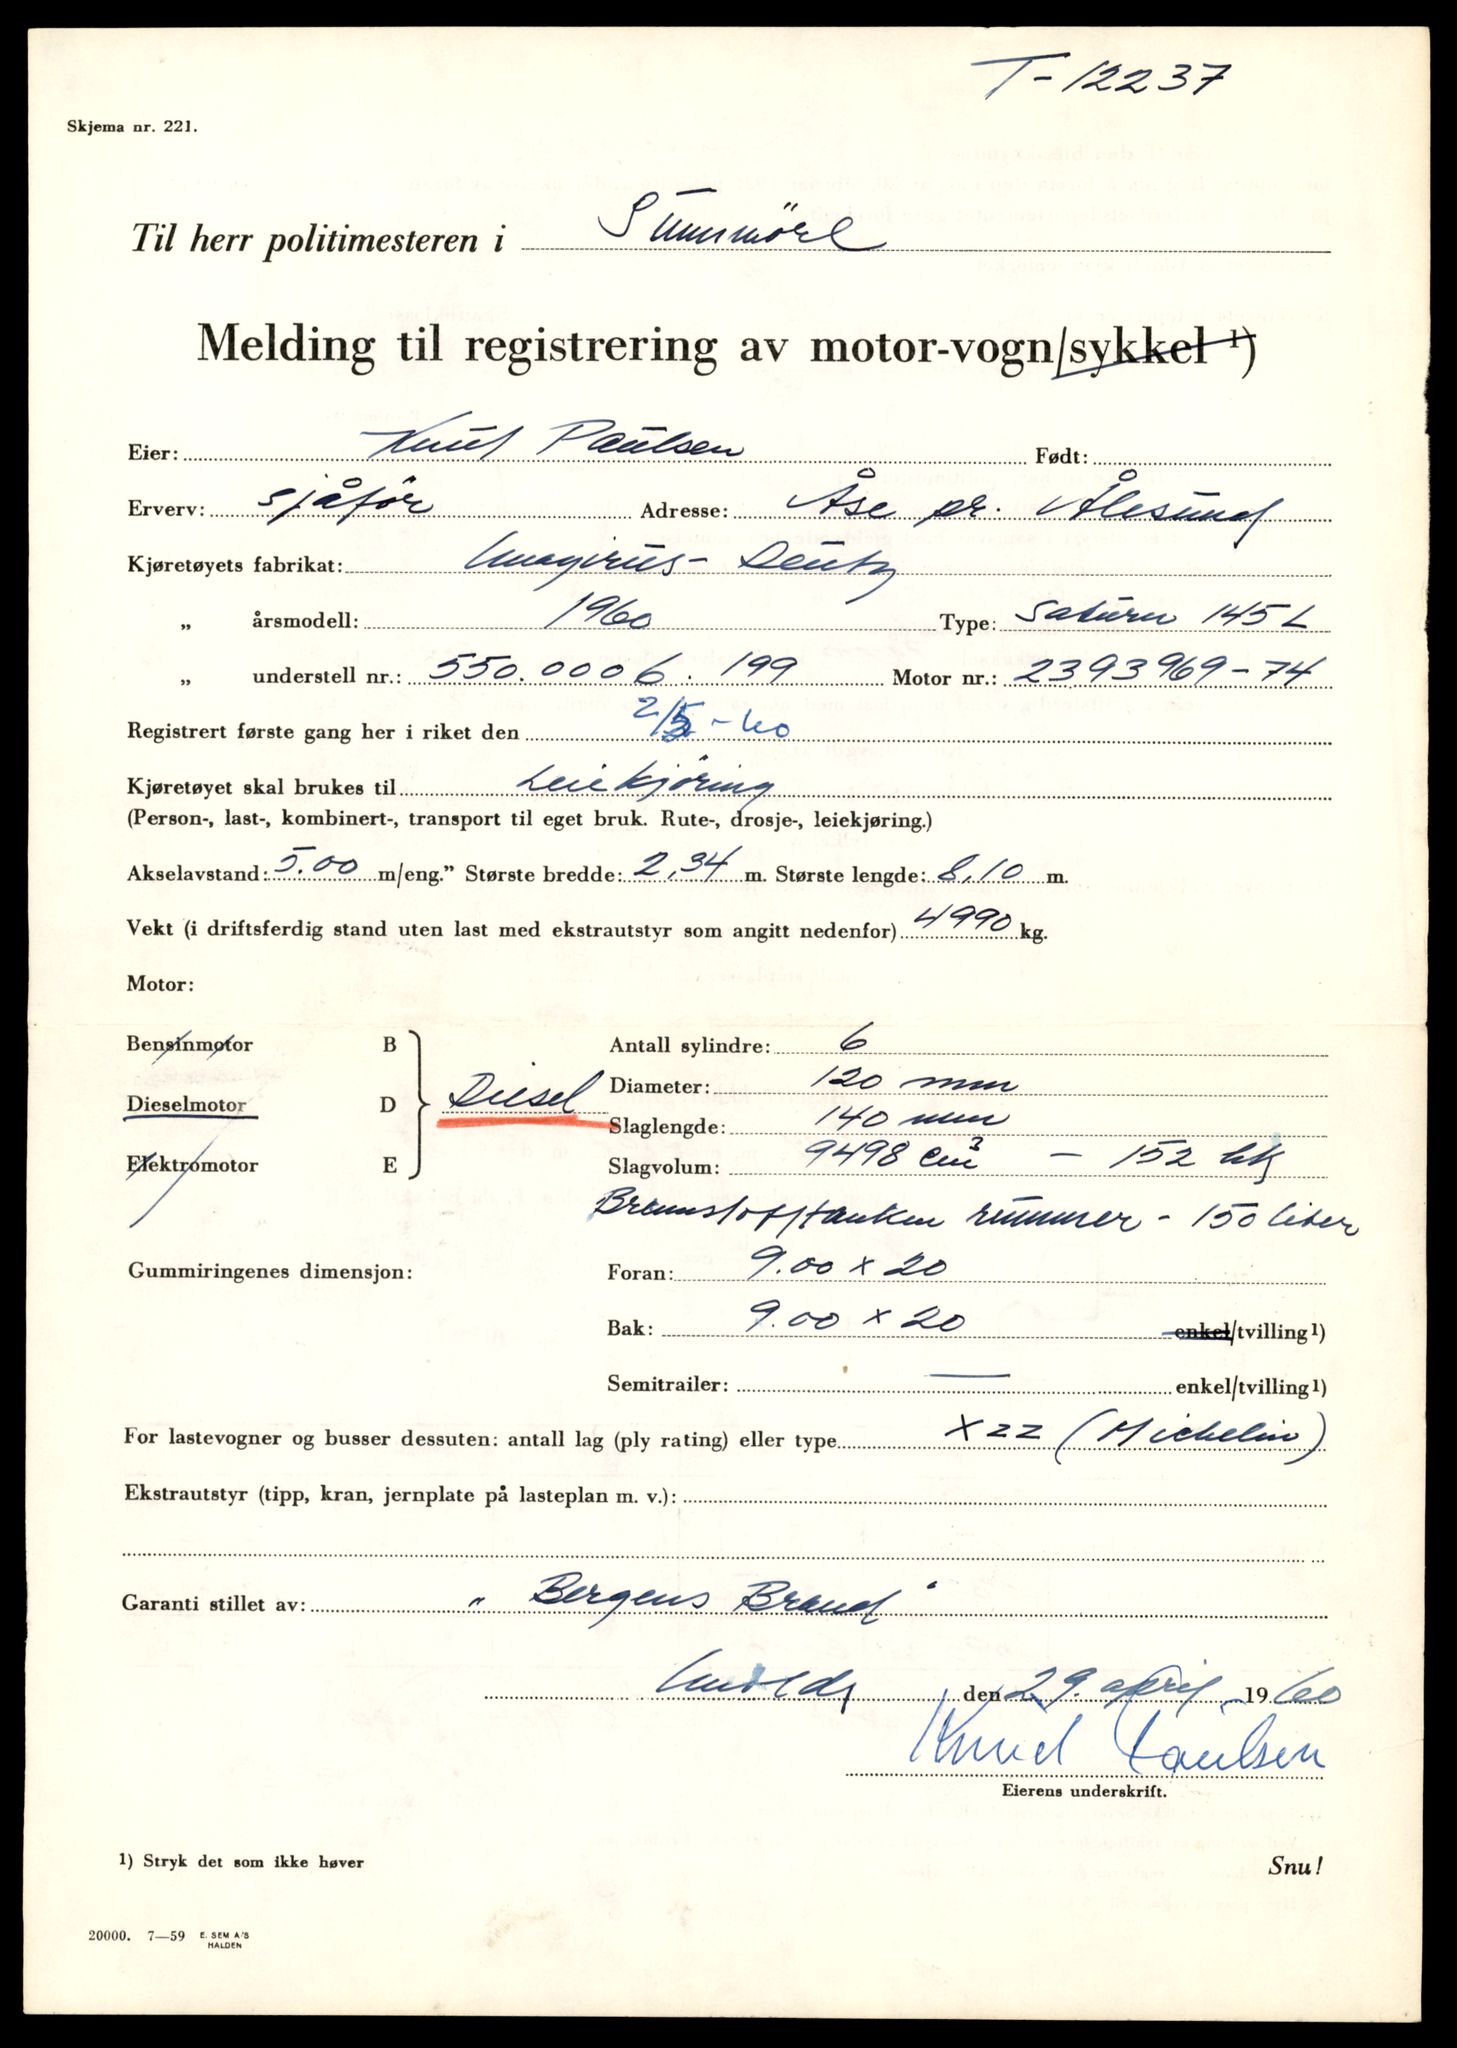 T-12237
Skjema nr. 221.
Til herr politimesteren i Sunnmöre
Melding til registrering av motor-vogn/sykkel ¹)
Eier: Knut Paulsen Født:
Erverv: sjåför Adresse: Åse pr. Ålesund
Kjøretøyets fabrikat: Magirus-Deutz
„ årsmodell: 1960 Type: Saturn 145 L
„ understell nr.: 550.0006.199 Motor nr.: 2393969-74
Registrert første gang her i riket den 2/5-60
Kjøretøyet skal brukes til Leiekjöring
(Person-, last-, kombinert-, transport til eget bruk. Rute-, drosje-, leiekjøring.)
Akselavstand: 5.00 m/eng.” Største bredde: 2,34 m. Største lengde: 8,10 m.
Vekt (i driftsferdig stand uten last med ekstrautstyr som angitt nedenfor) 4990 kg.
Motor:
Bensinmotor B Antall sylindre: 6
Diameter: 120 mm
Dieselmotor D Diesel
Slaglengde: 140 mm
Elektromotor E Slagvolum: 9498 cm³ - 152 hk
Brennstofftanken rummer - 150 liter
Gummiringenes dimensjon: Foran: 9.00 x 20
Bak: 9.00 x 20 enkel/tvilling ¹)
Semitrailer: — enkel/tvilling ¹)
For lastevogner og busser dessuten: antall lag (ply rating) eller type XZZ (Michelin)
Ekstrautstyr (tipp, kran, jernplate på lasteplan m. v.):
Garanti stillet av: „ Bergens Brand "
Molde den 29. april 1960
Knut Paulsen
Eierens underskrift.
¹) Stryk det som ikke høver Snu!
20000. 7—59 E. SEM A/S
HALDEN